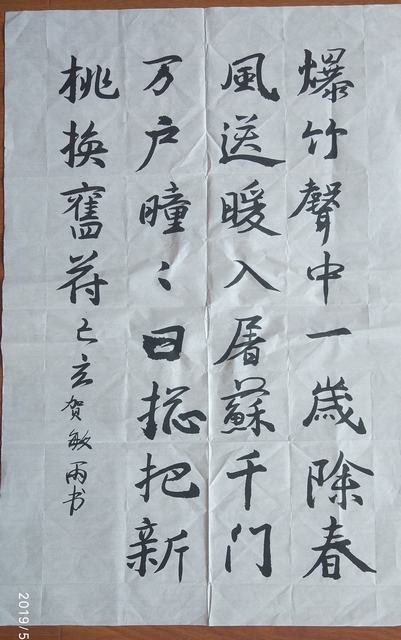 爆竹聲中一歲除春
風送暖入屠蘇千门
万户曈〻日摠把新
桃换舊符己亥贺敏雨书
2019/5